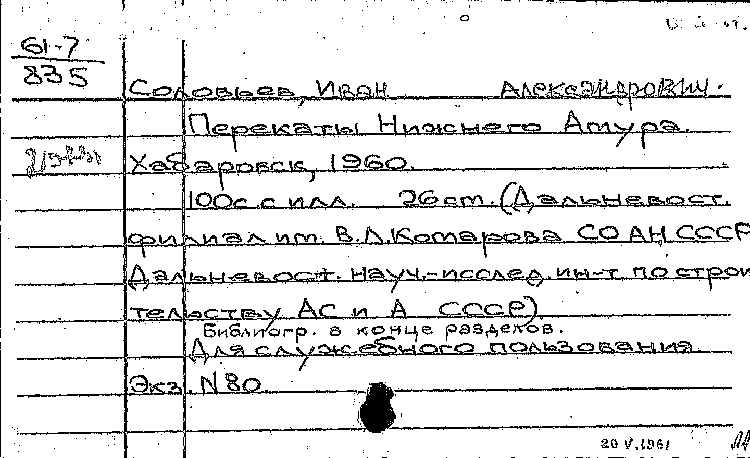 61-7
835
Соловьев, Иван Александрович.
Перекаты Нижнего Амура.
Хабаровск, 1960.
100с. с илл. 26 cm. (Дальневост.
филиал им. В.Л.Комарова СО АН СССР
Дальневост. науч.-исслед. ин-т по строи
тельству АС и А СССР)
Библиогр. в конце разделов.
Для служебного пользования.
Экз. N 80
20 V.1961